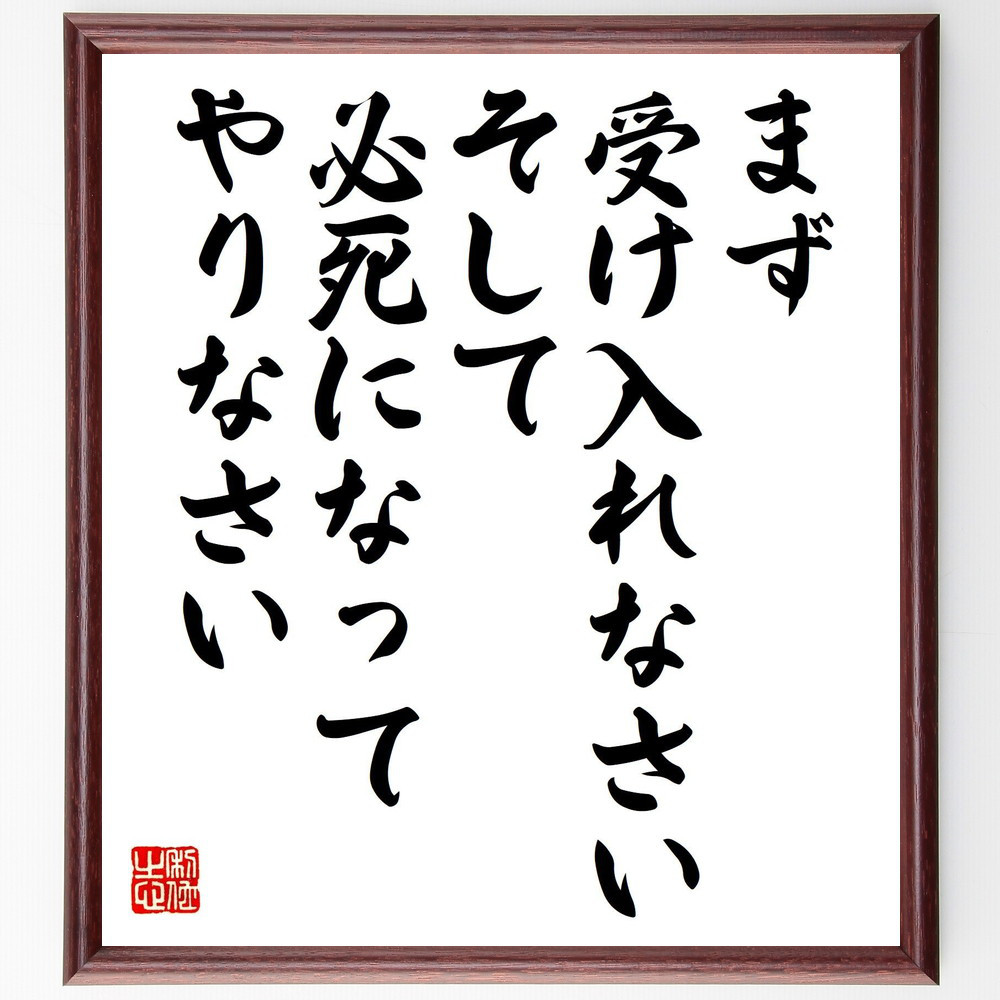 まず
受け入れなさい
そして
必死になって
やりなさい